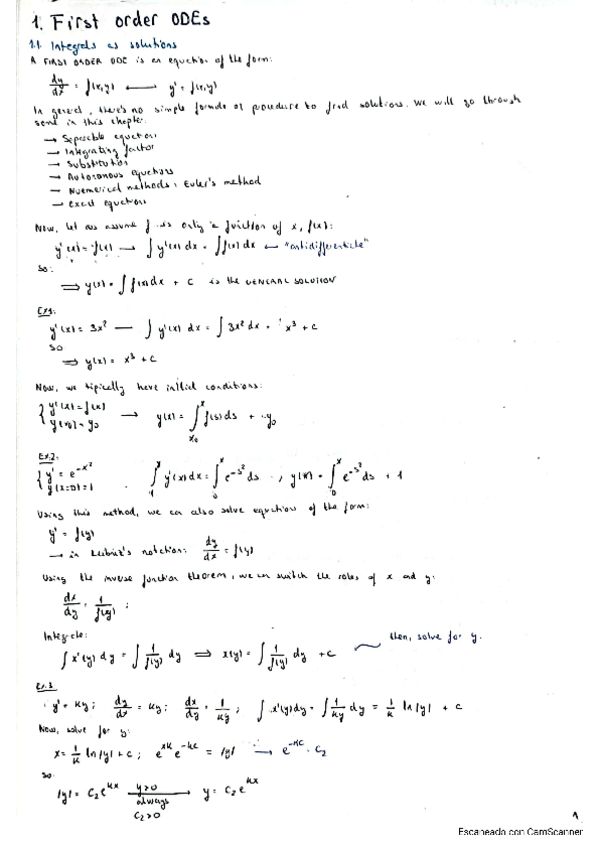 1. First order ODEs
1.1. Integrals as solutions
A FIRST ORDER ODE is an equation of the form:
dy/dx = f(x,y) ⟷ y' = f(x,y)
In general, there's no simple formula or procedure to find solutions. We will go through
some in this chapter:
→ Separable equations
→ Integrating factor
→ Substitution
→ Autonomous equations
→ Numerical methods: Euler's method
→ Exact equations
Now, let us assume f is only a function of x, f(x):
y'(x) = f(x) → ∫ y'(x) dx = ∫ f(x) dx ← "antidifferentiate"
So:
⟹ y(x) = ∫ f(x) dx + C is the GENERAL SOLUTION
Ex1:
y'(x) = 3x² — ∫ y'(x) dx = ∫ 3x² dx = x³ + C
so
⟹ y(x) = x³ + C
Now, we tipically have initial conditions:
{ y'(x) = f(x)
y(x₀) = y₀ → y(x) = ∫_{x₀}^{x} f(s) ds + y₀
Ex.2:
{ y' = e^{-x²}
y(x=0) = 1 ∫^{x} y'(x) dx = ∫_{0}^{x} e^{-s²} ds ; y(x) = ∫_{0}^{x} e^{-s²} ds + 1
Using this method, we can also solve equations of the form:
y' = f(y)
→ in Leibniz's notation: dy/dx = f(y)
Using the inverse function theorem, we can switch the roles of x and y:
dx/dy = 1/f(y) ;
Integrate:
∫ x'(y) dy = ∫ 1/f(y) dy ⟹ x(y) = ∫ 1/f(y) dy + C then, solve for y.
Ex.3
y' = ky ; dy/dx = ky ; dx/dy = 1/ky ; ∫ x'(y) dy = ∫ 1/ky dy = 1/k ln|y| + C
Now, solve for y:
x = 1/k ln|y| + C ; e^{xk} e^{-kC} = |y| → e^{-kC} = C₂
so:
|y| = C₂ e^{kx} → y = C₂ e^{kx}
y>0
always
C₂>0
1
Escaneado con CamScanner